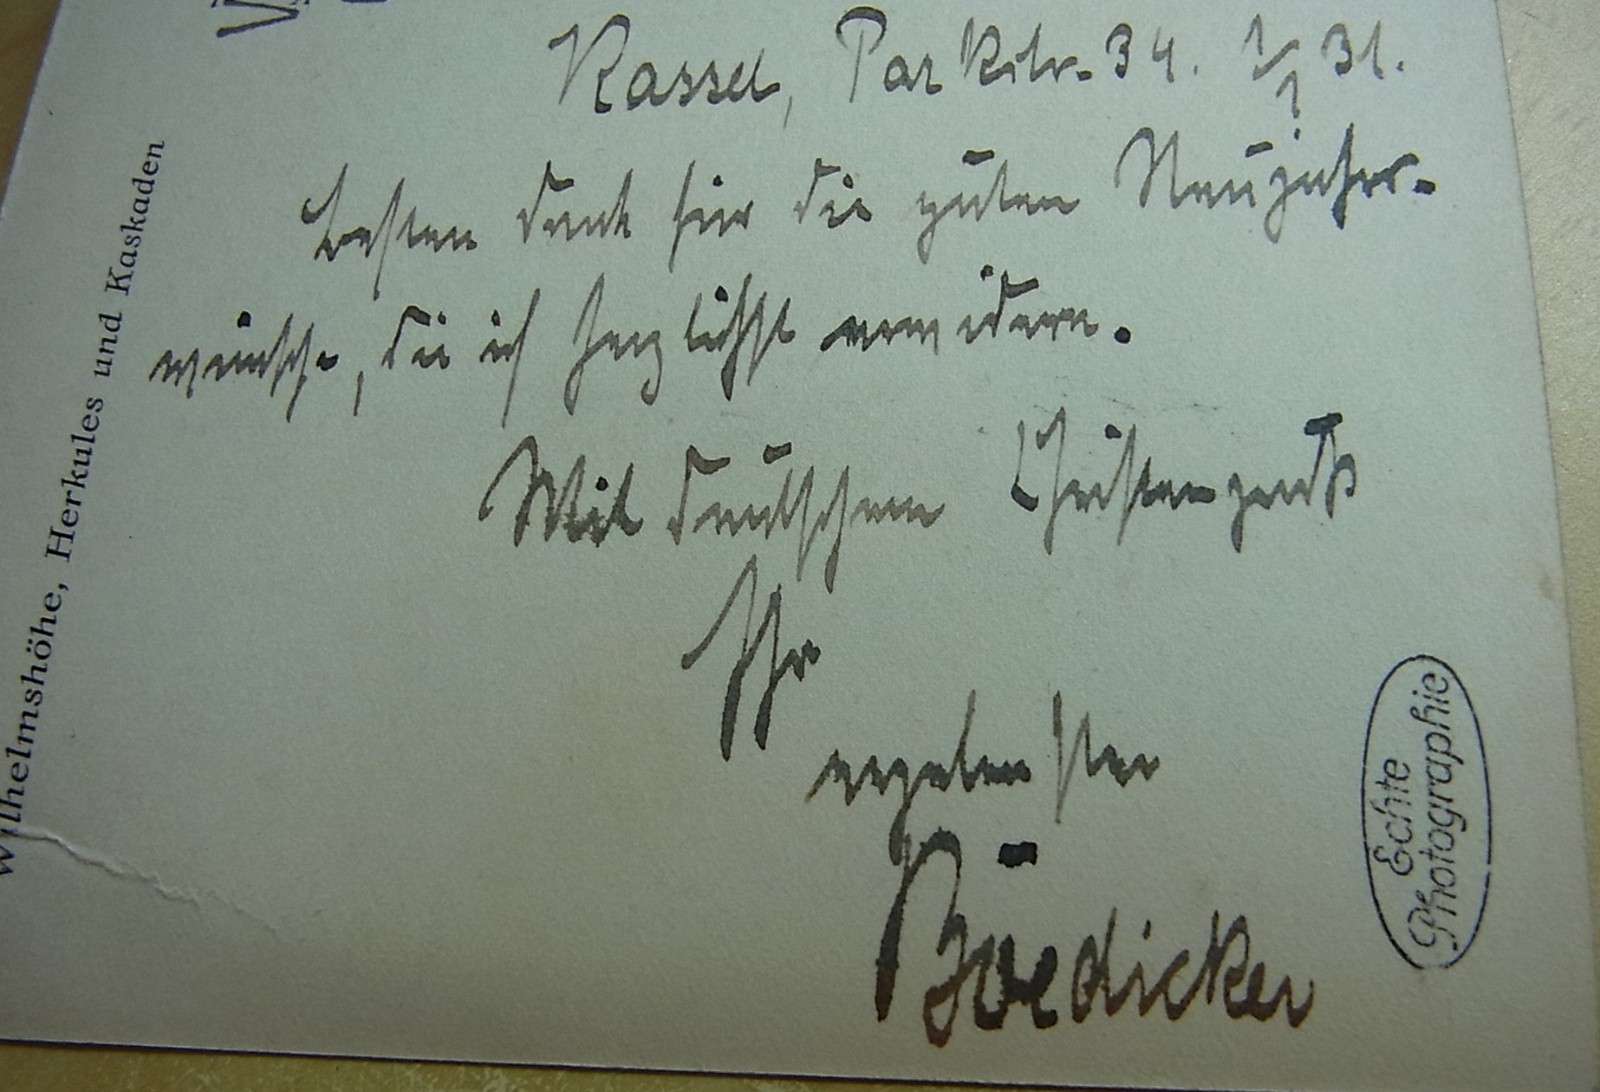 Kassel, Parkstr. 34. 1/1 31.
besten Dank für die guten Neujahrs-
wünsche, die ich herzlichst erwidere.
Mit deutschem Christengruß
Ihr
ergebenster
Boedicker
Wilhelmshöhe, Herkules und Kaskaden
Echte
Photographie